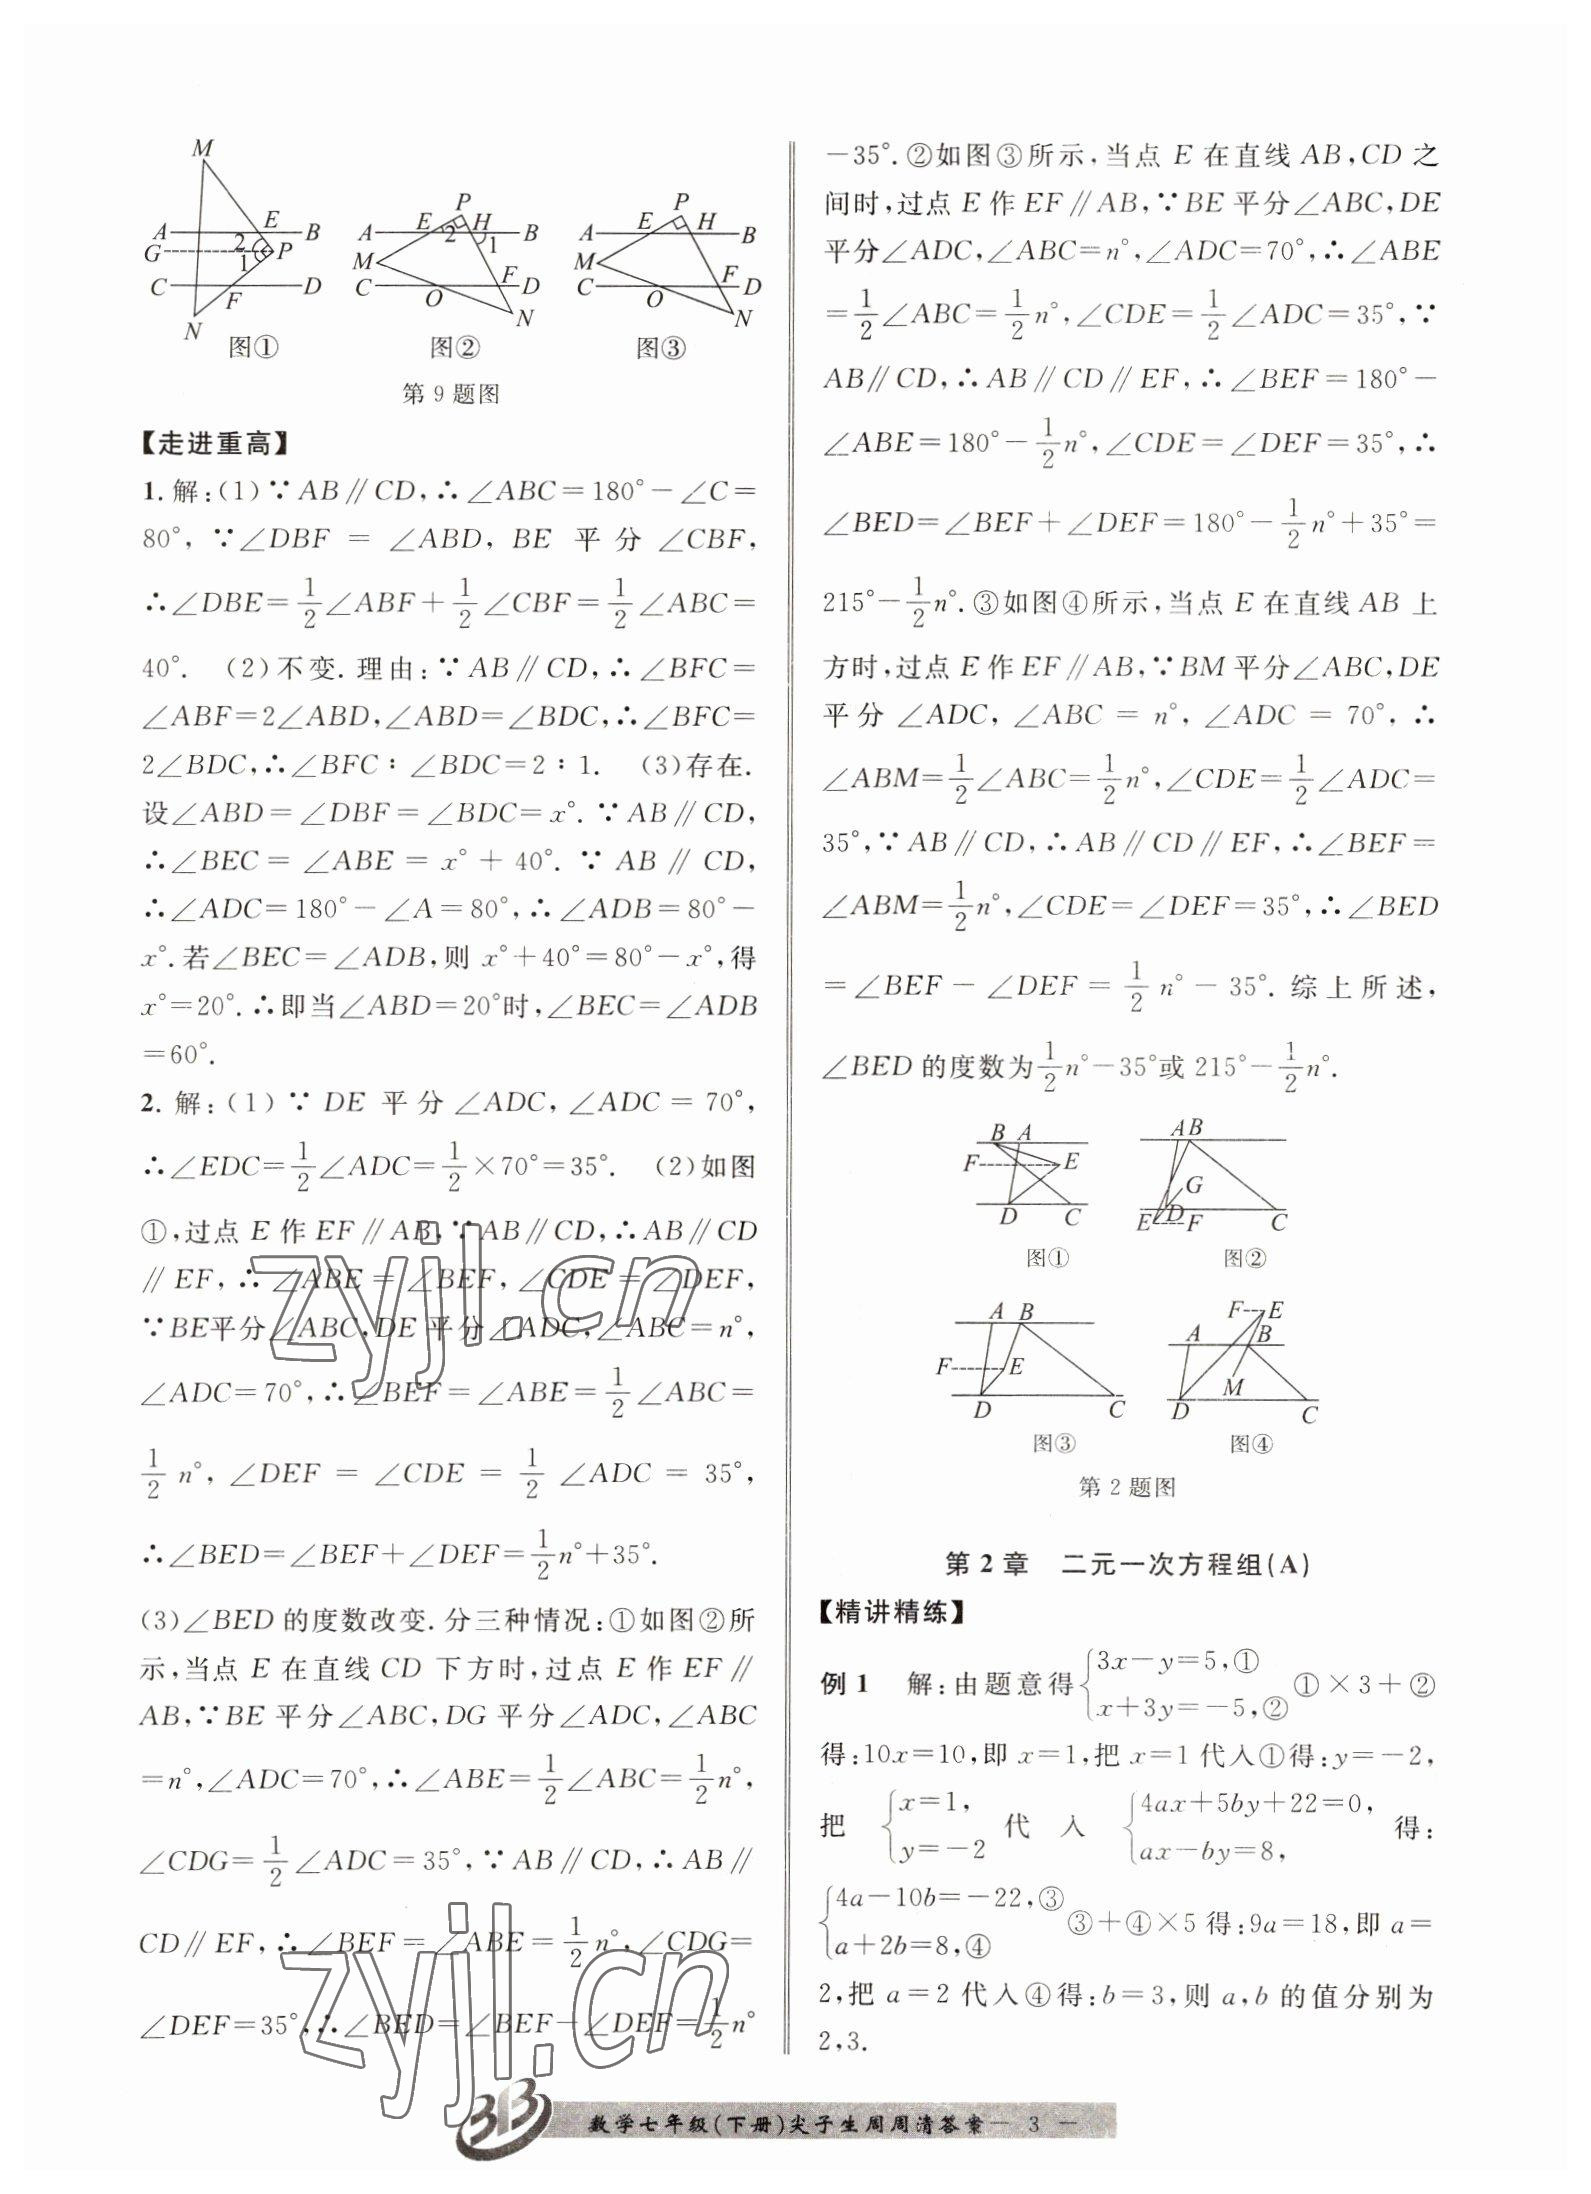 M
A E B
G 2 P
1
C F D
N
图①
P
A E 2 H B
1
M
C O F D
N
图②
P
A E H B
M
C O F D
N
图③
第 9 题图
【走进重高】
1. 解:(1)∵AB∥CD,∴∠ABC=180°-∠C=
80°, ∵∠DBF = ∠ABD, BE 平分 ∠CBF,
∴∠DBE=1/2∠ABF+1/2∠CBF=1/2∠ABC=
40°. (2)不变. 理由:∵AB∥CD,∴∠BFC=
∠ABF=2∠ABD,∠ABD=∠BDC,∴∠BFC=
2∠BDC,∴∠BFC∶∠BDC=2∶1. (3)存在.
设∠ABD=∠DBF=∠BDC=x°. ∵AB∥CD,
∴∠BEC= ∠ABE = x° + 40°. ∵ AB ∥ CD,
∴∠ADC=180°-∠A=80°,∴∠ADB=80°-
x°. 若∠BEC=∠ADB,则 x°+40°=80°-x°,得
x°=20°. ∴即当∠ABD=20°时,∠BEC=∠ADB
=60°.
2. 解:(1)∵ DE 平分∠ADC,∠ADC=70°,
∴∠EDC=1/2∠ADC=1/2×70°=35°. (2)如图
①,过点 E 作 EF∥AB,∵AB∥CD,∴AB∥CD
∥EF,∴∠ABE=∠BEF,∠CDE=∠DEF,
∵BE平分∠ABC,DE平分∠ADC,∠ABC=n°,
∠ADC=70°,∴∠BEF=∠ABE=1/2∠ABC=
1/2 n°, ∠DEF = ∠CDE = 1/2 ∠ADC = 35°,
∴∠BED=∠BEF+∠DEF=1/2n°+35°.
(3)∠BED 的度数改变. 分三种情况:①如图②所
示,当点 E 在直线 CD 下方时,过点 E 作 EF∥
AB,∵BE 平分∠ABC,DG 平分∠ADC,∠ABC
=n°,∠ADC=70°,∴∠ABE=1/2∠ABC=1/2n°,
∠CDG=1/2∠ADC=35°,∵AB∥CD,∴AB∥
CD∥EF,∴∠BEF=∠ABE=1/2n°,∠CDG=
∠DEF=35°,∴∠BED=∠BEF-∠DEF=1/2n°
-35°. ②如图③所示,当点 E 在直线 AB,CD 之
间时,过点 E 作 EF∥AB,∵BE 平分∠ABC,DE
平分∠ADC,∠ABC=n°,∠ADC=70°,∴∠ABE
=1/2∠ABC=1/2n°,∠CDE=1/2∠ADC=35°,∵
AB∥CD,∴AB∥CD∥EF,∴∠BEF=180°-
∠ABE=180°-1/2n°,∠CDE=∠DEF=35°,∴
∠BED=∠BEF+∠DEF=180°-1/2n°+35°=
215°-1/2n°. ③如图④所示,当点 E 在直线 AB 上
方时,过点 E 作 EF∥AB,∵BM 平分∠ABC,DE
平分 ∠ADC, ∠ABC = n°, ∠ADC = 70°, ∴
∠ABM=1/2∠ABC=1/2n°,∠CDE=1/2∠ADC=
35°,∵AB∥CD,∴AB∥CD∥EF,∴∠BEF=
∠ABM=1/2n°,∠CDE=∠DEF=35°,∴∠BED
=∠BEF-∠DEF=1/2 n°-35°. 综上所述,
∠BED 的度数为1/2n°-35°或 215°-1/2n°.
B A
F E
D C
图①
A B
G
E D F C
图②
A B
F E
D C
图③
F E
A B
M
D C
图④
第 2 题图
第 2 章 二元一次方程组(A)
【精讲精练】
例 1 解:由题意得{3x-y=5,① x+3y=-5,② ①×3+②
得:10x=10,即 x=1,把 x=1 代入①得:y=-2,
把 {x=1, y=-2 代入 {4ax+5by+22=0, ax-by=8, 得:
{4a-10b=-22,③ a+2b=8,④ ③+④×5 得:9a=18,即 a=
2,把 a=2 代入④得:b=3,则 a,b 的值分别为
2,3.
数学七年级(下册)尖子生周周清答案— 3 —
zyjl.cn
zyjl.cn